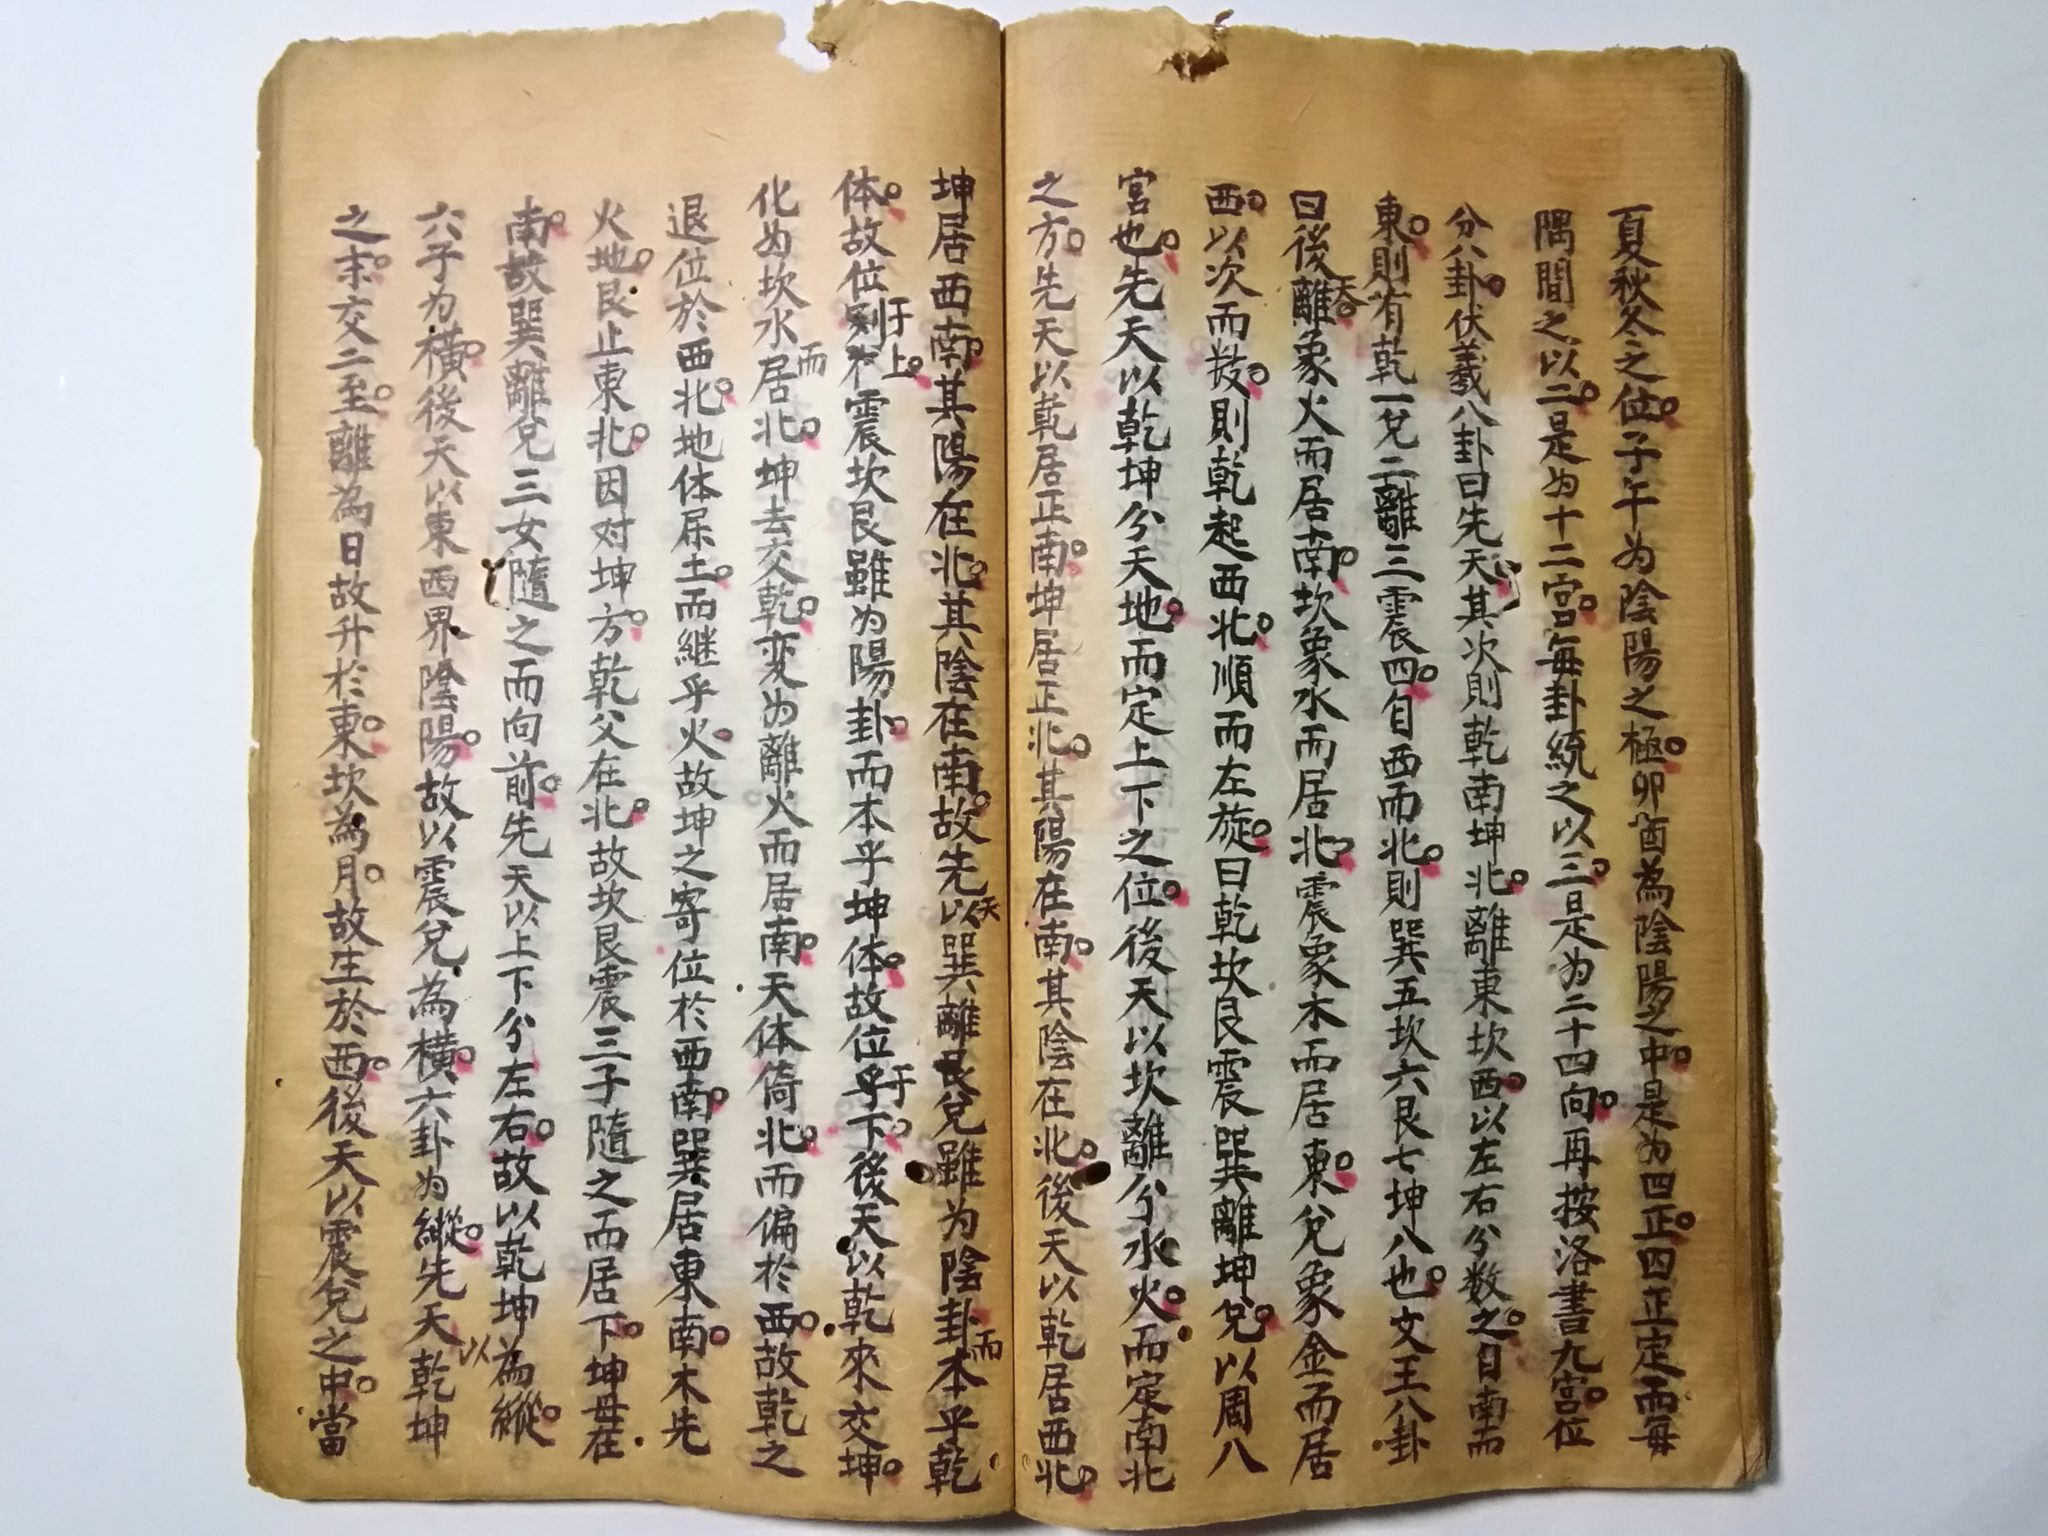 夏秋冬之位。子午为陰陽之極。卯酉為陰陽之中。是为四正。四正定而每
隅間之以二。是为十二宫。每卦統之以三。是为二十四向。再按洛書九宫。位
分八卦。伏羲八卦曰先天。其次則乾南坤北。離東坎西。以左右分数之。自南而
東。則有乾一兌二離三震四。自西而北。則巽五坎六艮七坤八也。文王八卦
曰後天。離象火而居南。坎象水而居北。震象木而居東。兌象金而居
西。以次而数。則乾起西北。順而左旋。曰乾坎艮震巽離坤兌。以周八
宮也。先天以乾坤分天地。而定上下之位。後天以坎離分水火。而定南北
之方。先天以乾居正南。坤居正北。其陽在南。其陰在北。後天以乾居西北。
坤居西南。其陽在北。其陰在南。故先天以巽離兌雖为陰卦而本乎乾
体。故位于上。震坎艮雖为陽卦。而本乎坤体。故位于下。後天以乾來交坤。
化为坎水而居北。坤去交乾。変为離火而居南。天体倚北。而偏於西。故乾之
退位於西北。地体屈土。而継乎火。故坤之寄位於西南。巽居東南。木先
火地。艮止東北。因对坤方。乾父在北。故坎艮震三子隨之而居下。坤母在
南。故巽離兌三女隨之而向前。先天以上下分左右。故以乾坤為縱。
六子为橫。後天以東西界陰陽。故以震兌為橫。六卦为縱。先天以乾坤
之末。交二至。離為日故升於東。坎為月。故生於西。後天以震兌之中。當